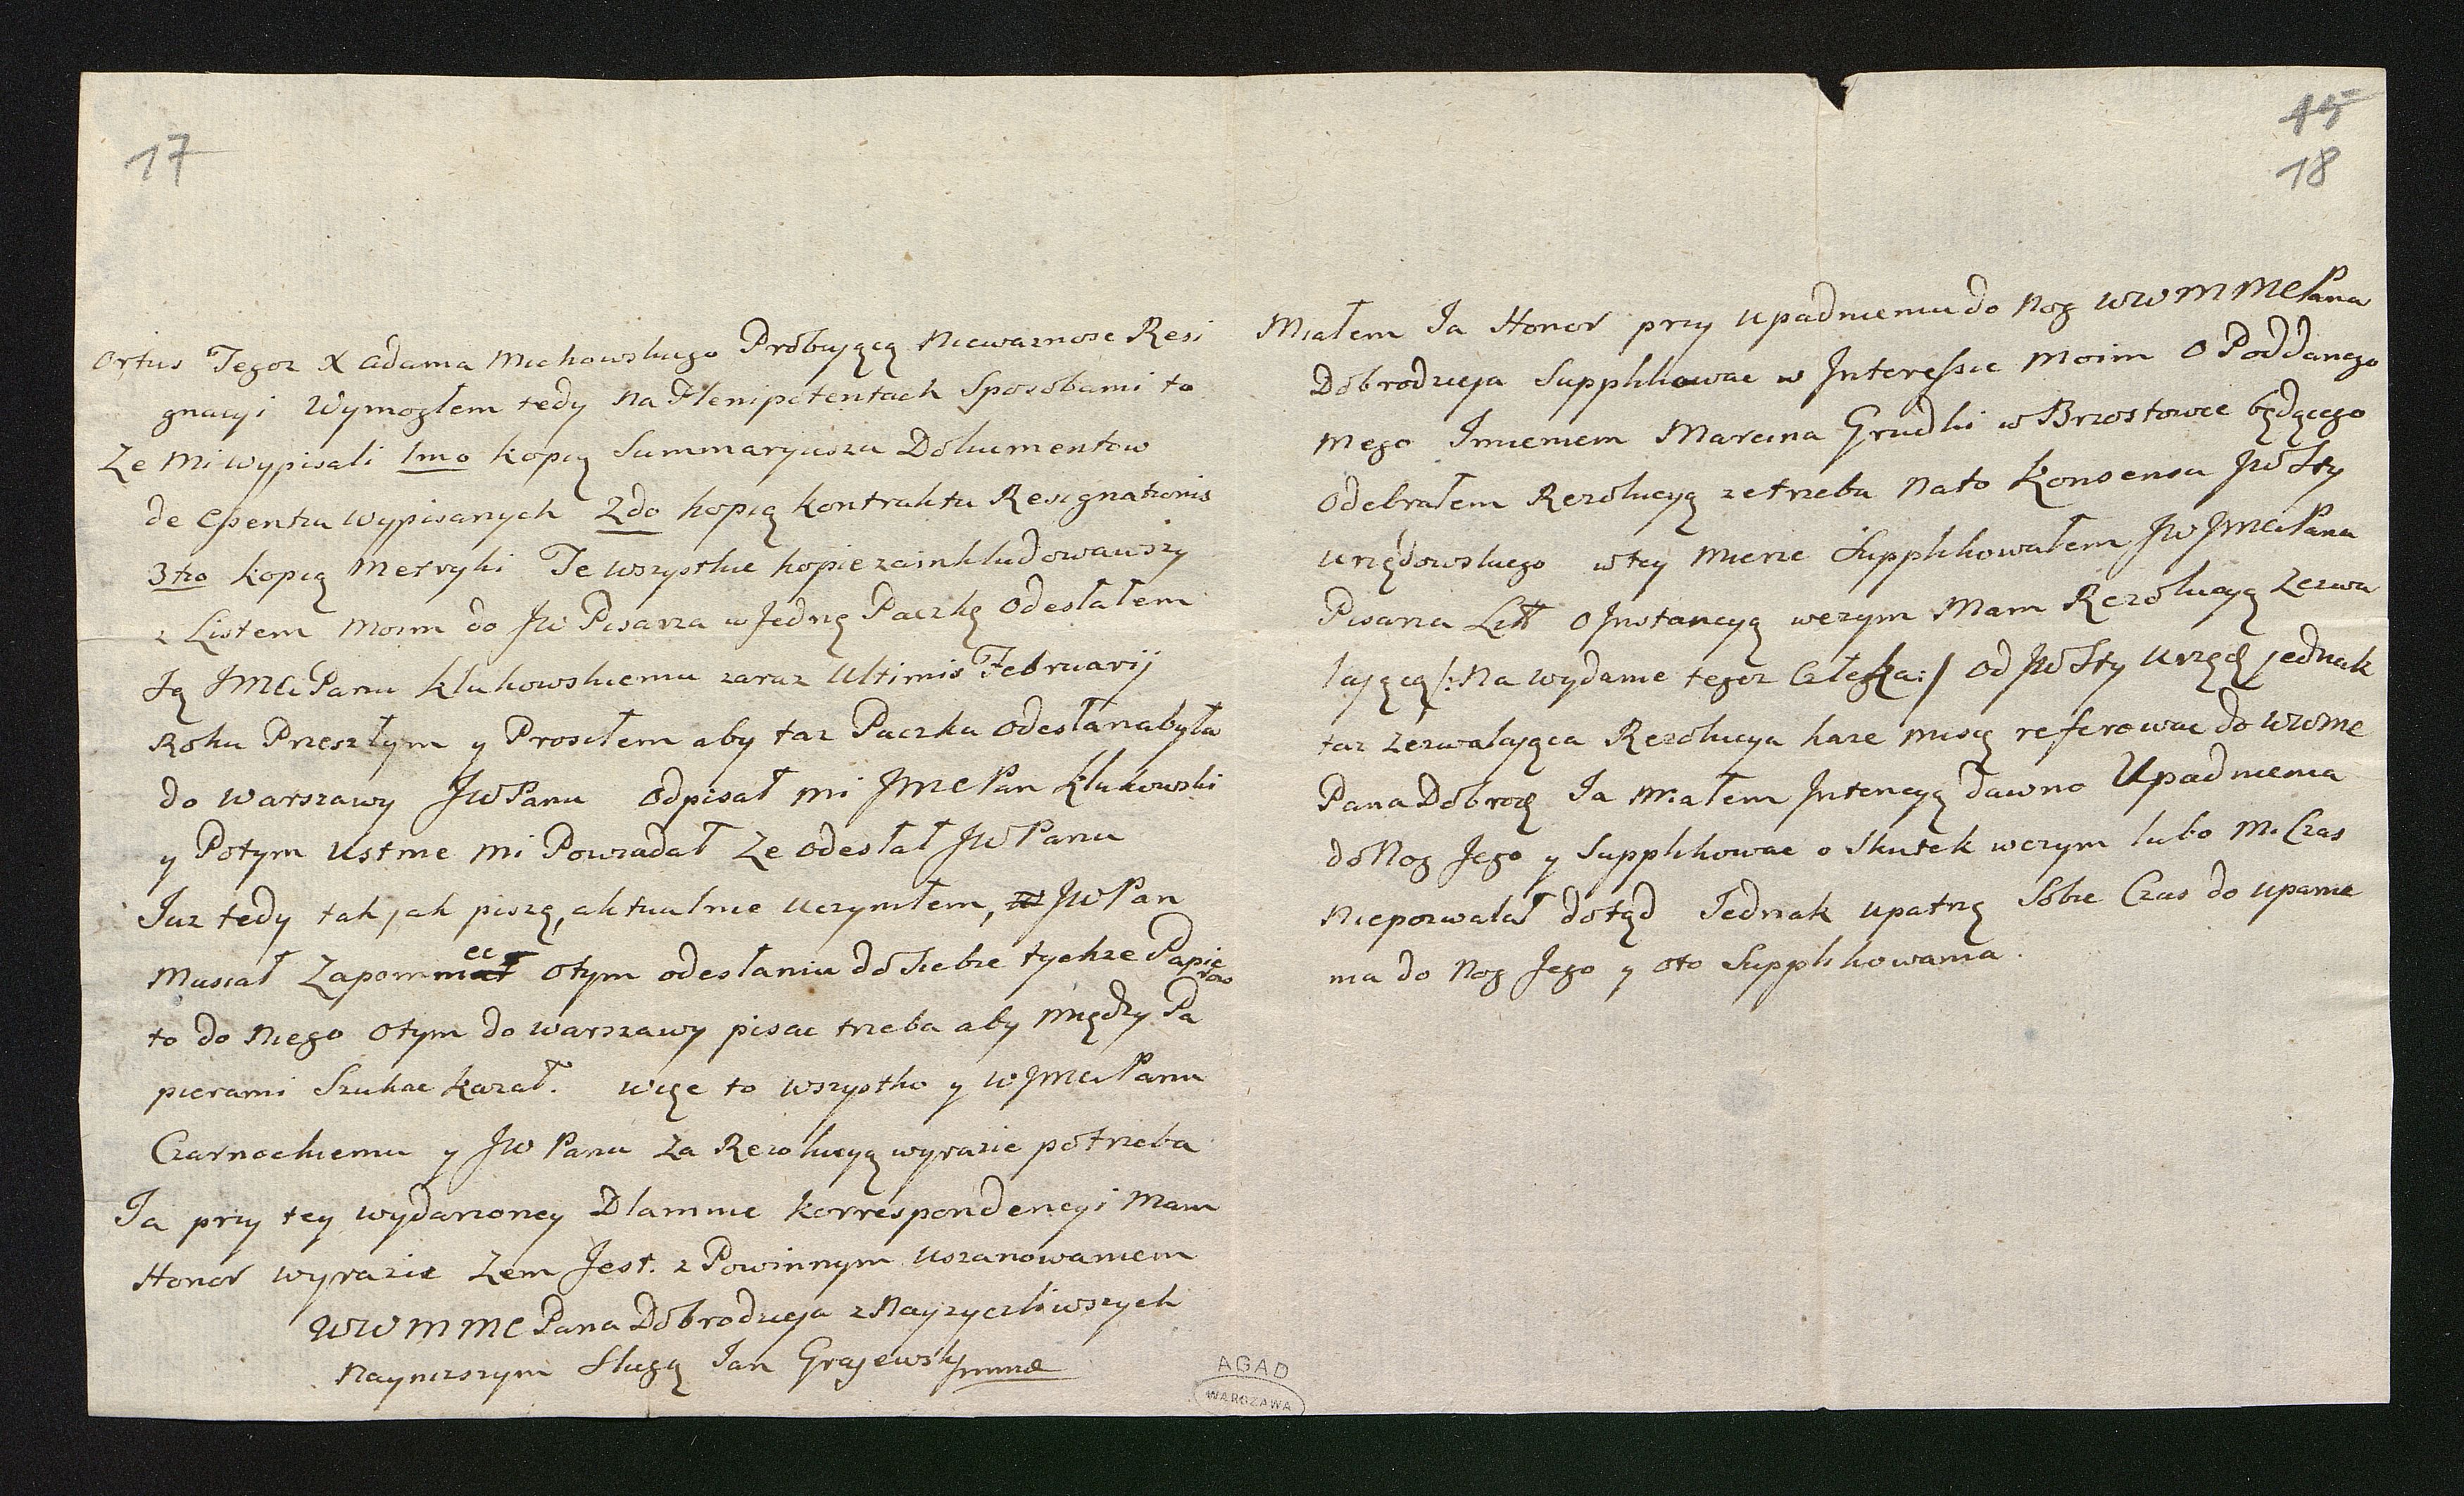 17
ortus Tegoz X Adama Michowskiego Probuiącą Niewaznosc Resi
gnacyi Wymogłem tedy Na Plenipotentach Sposobami to
Ze Mi wypisali 1mo kopią Summaryusza Dokumentow
de Essentia wypisanych 2do kopią kontraktu Resignationis
3tio kopią Metryki Te wszystkie kopie zainkludowawszy
z Listem Moim do JW Pisarza w Jedną Paczkę Odesłałem
Ją JMCi Panu Klukowskiemu zaraz Ultimis Februarij
Roku Przeszłym y Prosiłem aby taz Paczka odesłana była
do Warszawy JW Panu Odpisał mi JMC Pan Klukowski
y Potym Ustnie mi Powiadał Ze odesłał JW Panu
Iuz tedy tak jak piszę, aktualnie Uczyniłem, JW Pan
Musiał Zapomniec otym odesłaniu do Siebie tychze Papie
row
to do Niego otym do Warszawy pisac trzeba aby między Pa
pierami Szukac kazał. więc to wszystko y W JMCi Panu
Czarnockiemu y JW Panu Za Rezolucyą wyrazic potrzeba
Ia przy tey wydarzoney Dlamnie korrespondencyi Mam
Honor wyrazic Zem Jest. z Powinnym Uszanowaniem
WW M MC Pana Dobrodzieja z Nayzyczliwszych
Nayniszszym Sługą Jan Grajewski mmd
45
18
Miałem Ia Honor przy Upadnieniu do Nog WW M MC Pana
Dobrodzieja Supplikowac w Interessie Moim O Poddanego
Mego Imieniem Marcina Grudki w Brzostowce będącego
Odebrałem Rezolucyą ze trzeba Nato Konsensu JW Sty
Urzędowskiego w tey Mierze Supplikowałem JW JMCi Pana
Pisarza Litt O Instancyą w czym Mam Rezolucyą Zezwa
lającą /: Na wydanie tegoz Człeka :/ Od JW Sty Urzęd jednak
taz Zezwalająca Rezolucya kaze mi się referowac do WWMC
Pana Dobrodz Ia Miałem Intencyą dawno Upadnienia
do Nog Jego y Supplikowac o Skutek w czym lubo Mi Czas
Niepozwalał dotąd Jednak upatrzę Sobie Czas do upadnie
nia do Nog Jego y oto Supplikowania.
AGAD
WARSZAWA